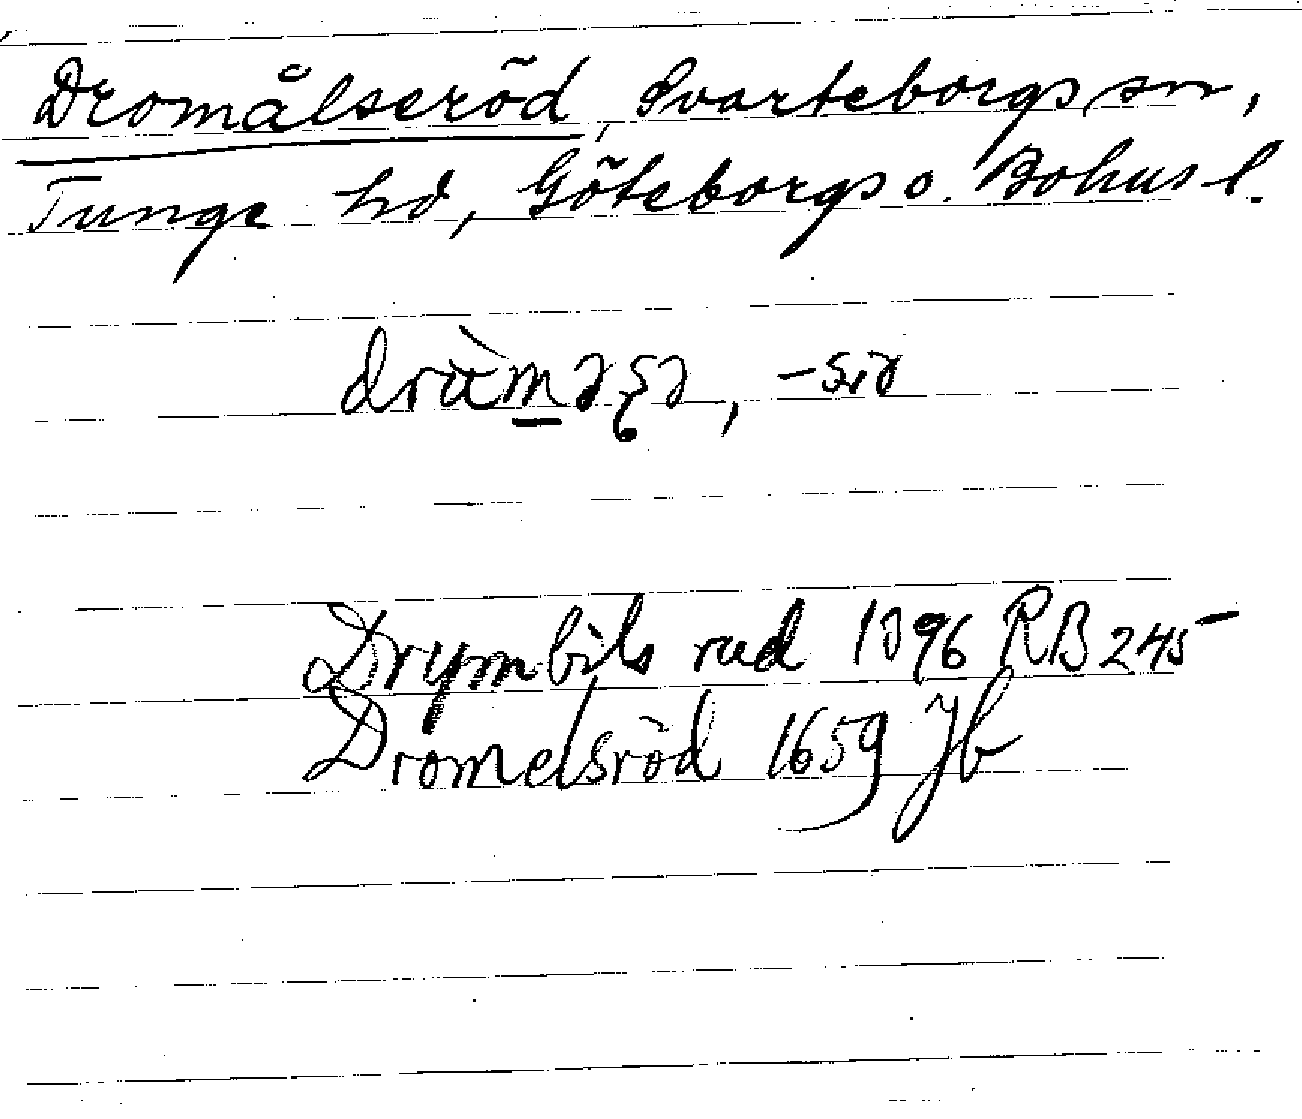 Dromålseröd, Svarteborgs sn,
Tunge hd, Göteborgs o. Bohus l.
Drymbils rud 1396 RB 245
Dromelsröd 1659 Jb